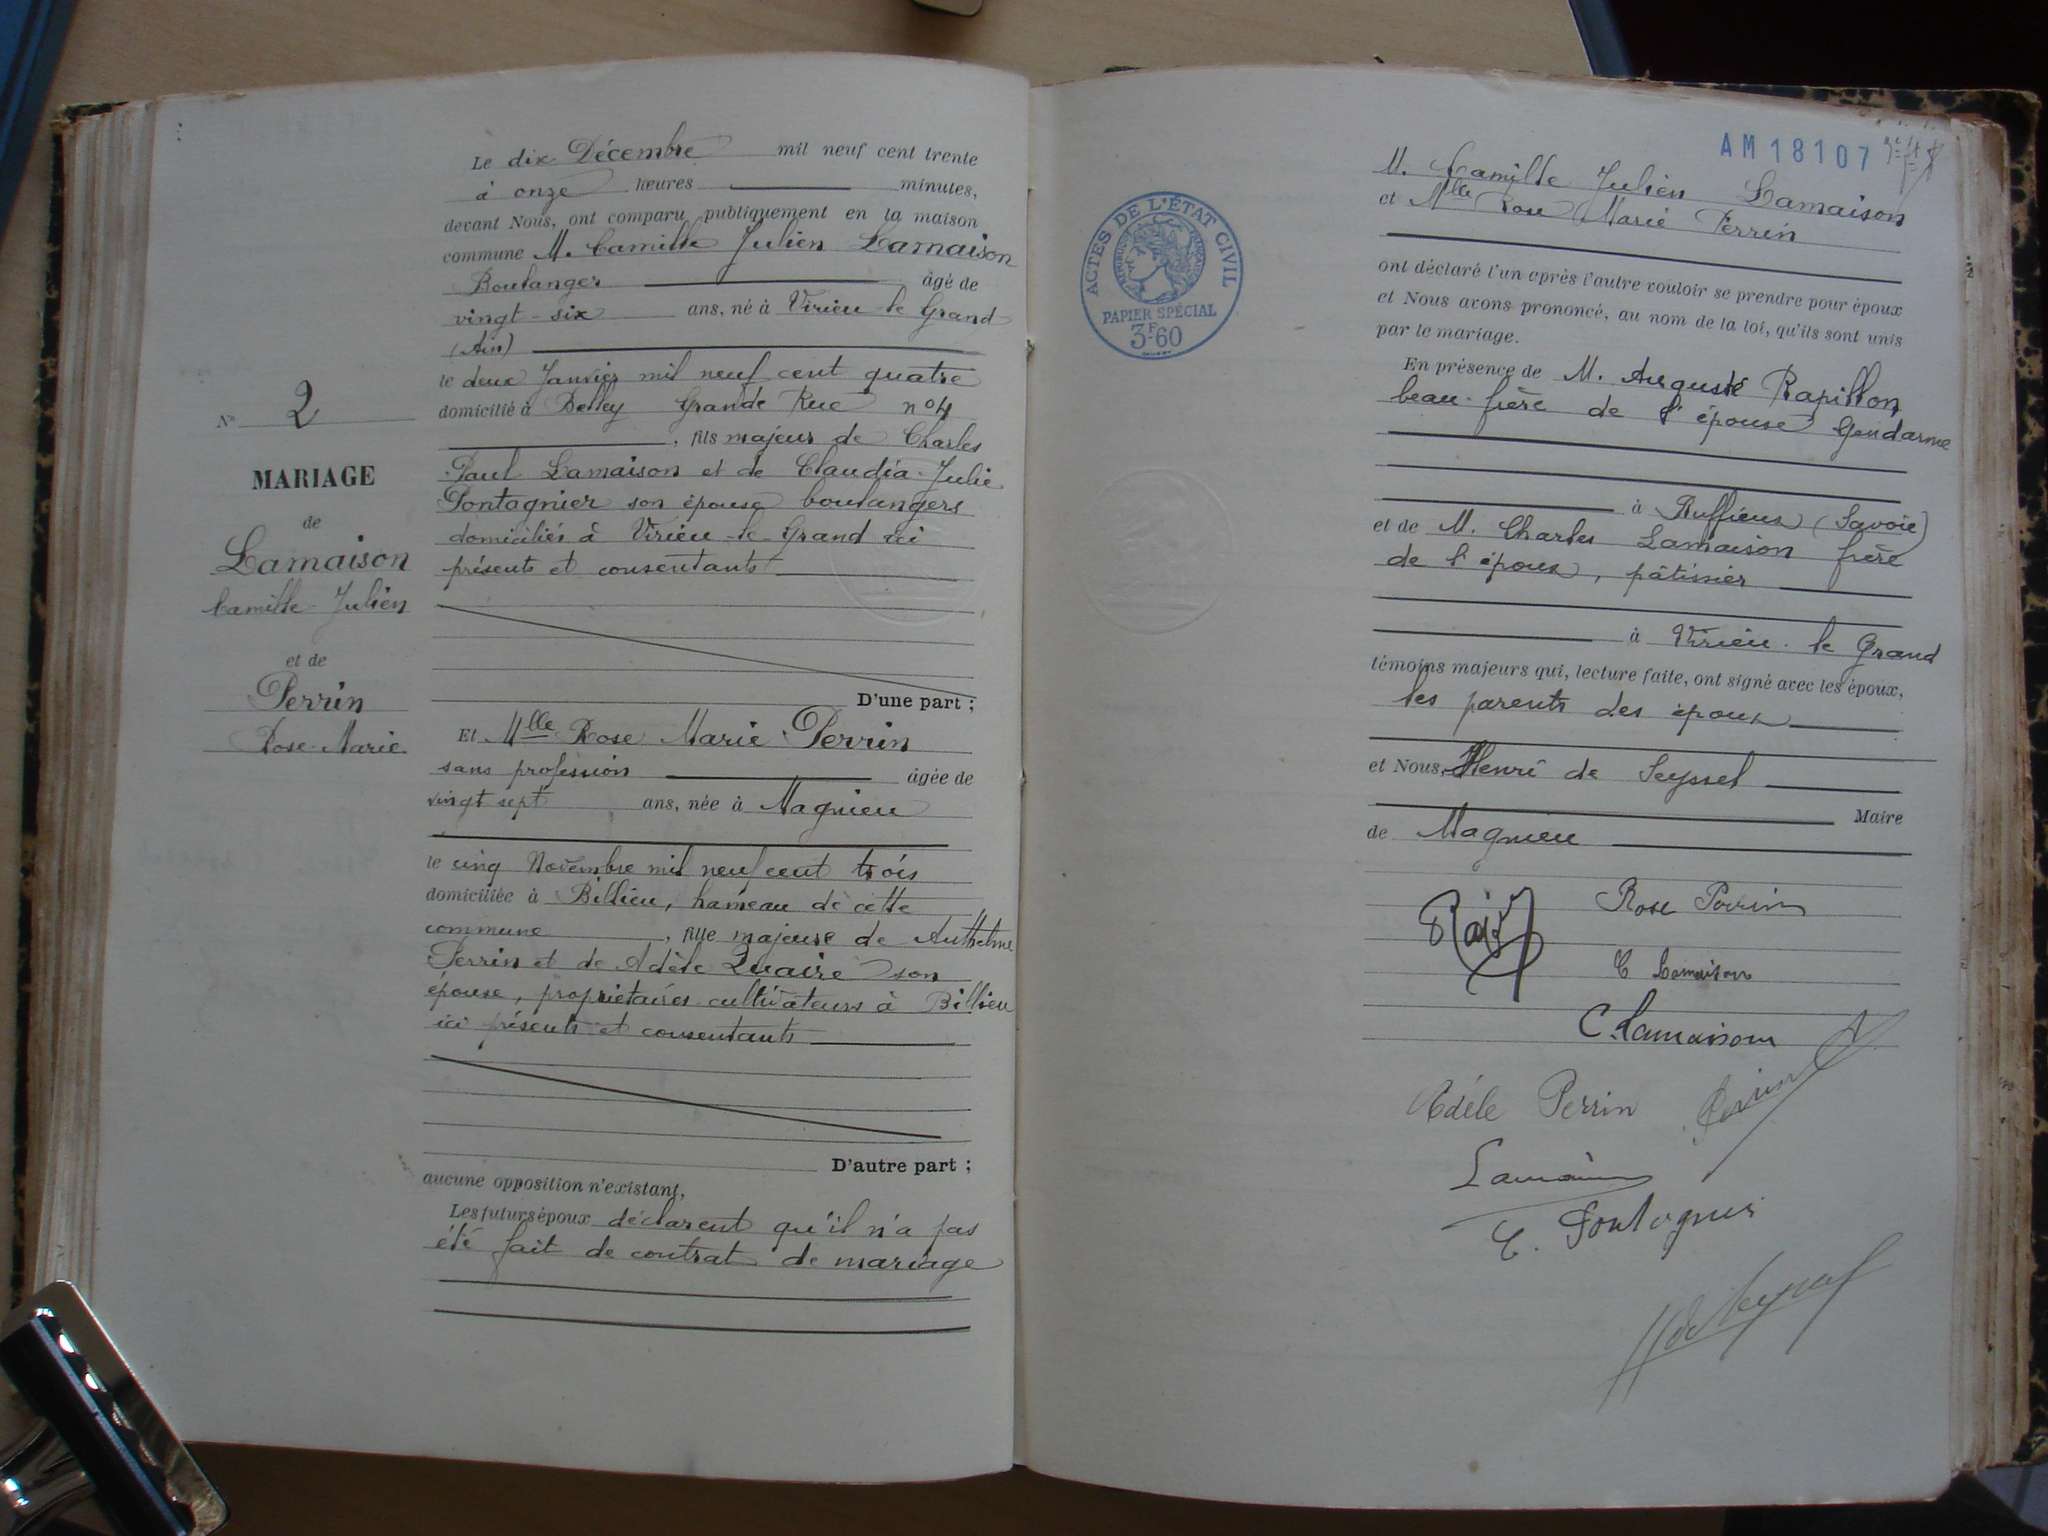 Le dix Décembre mil neuf cent trente
à onze heures minutes,
devant Nous, ont comparu publiquement en la maison
commune M. Camille Julien Lamaison
Boulanger âgé de
vingt-six ans, né à Virieu-le-Grand
(Ain)
le deux Janvier mil neuf cent quatre
domicilié à Belley Grande Rue n°4
, fils majeur de Charles
Paul Lamaison et de Claudia-Julie
Pontagnier son épouse boulangers
domiciliés à Virieu-le-Grand ici
présents et consentants
D'une part ;
Et Mlle Rose Marie Perrin
sans profession âgée de
vingt sept ans, née à Magnieu
le cinq Novembre mil neuf cent trois
domiciliée à Billieu, hameau de cette
commune , fille majeure de Anthelme
Perrin et de Adèle Quaire son
épouse, propriétaires cultivateurs à Billieu
ici présents et consentants
D'autre part ;
aucune opposition n'existant,
Les futurs époux déclarent qu'il n'a pas
été fait de contrat de mariage
N° 2
MARIAGE
de
Lamaison
Camille-Julien
et de
Perrin
Rose-Marie
AM18107
ACTES DE L'ÉTAT CIVIL
RÉPUBLIQUE FRANÇAISE
PAPIER SPÉCIAL
3F60
M. Camille Julien Lamaison
et Mlle Rose Marie Perrin
ont déclaré l'un après l'autre vouloir se prendre pour époux
et Nous avons prononcé, au nom de la loi, qu'ils sont unis
par le mariage.
En présence de M. Auguste Rapillon
beau-frère de l'épouse Gendarme
à Ruffieux (Savoie)
et de M. Charles Lamaison frère
de l'époux, pâtissier
à Virieu-le Grand
témoins majeurs qui, lecture faite, ont signé avec les époux,
les parents des époux
et Nous, Henri de Seyssel
Maire
de Magnieu
Rose Perrin
C Lamaison
C. Lamaison
Adèle Perrin Perrin
Lamaison
C. Pontagnier
H de Seyssel